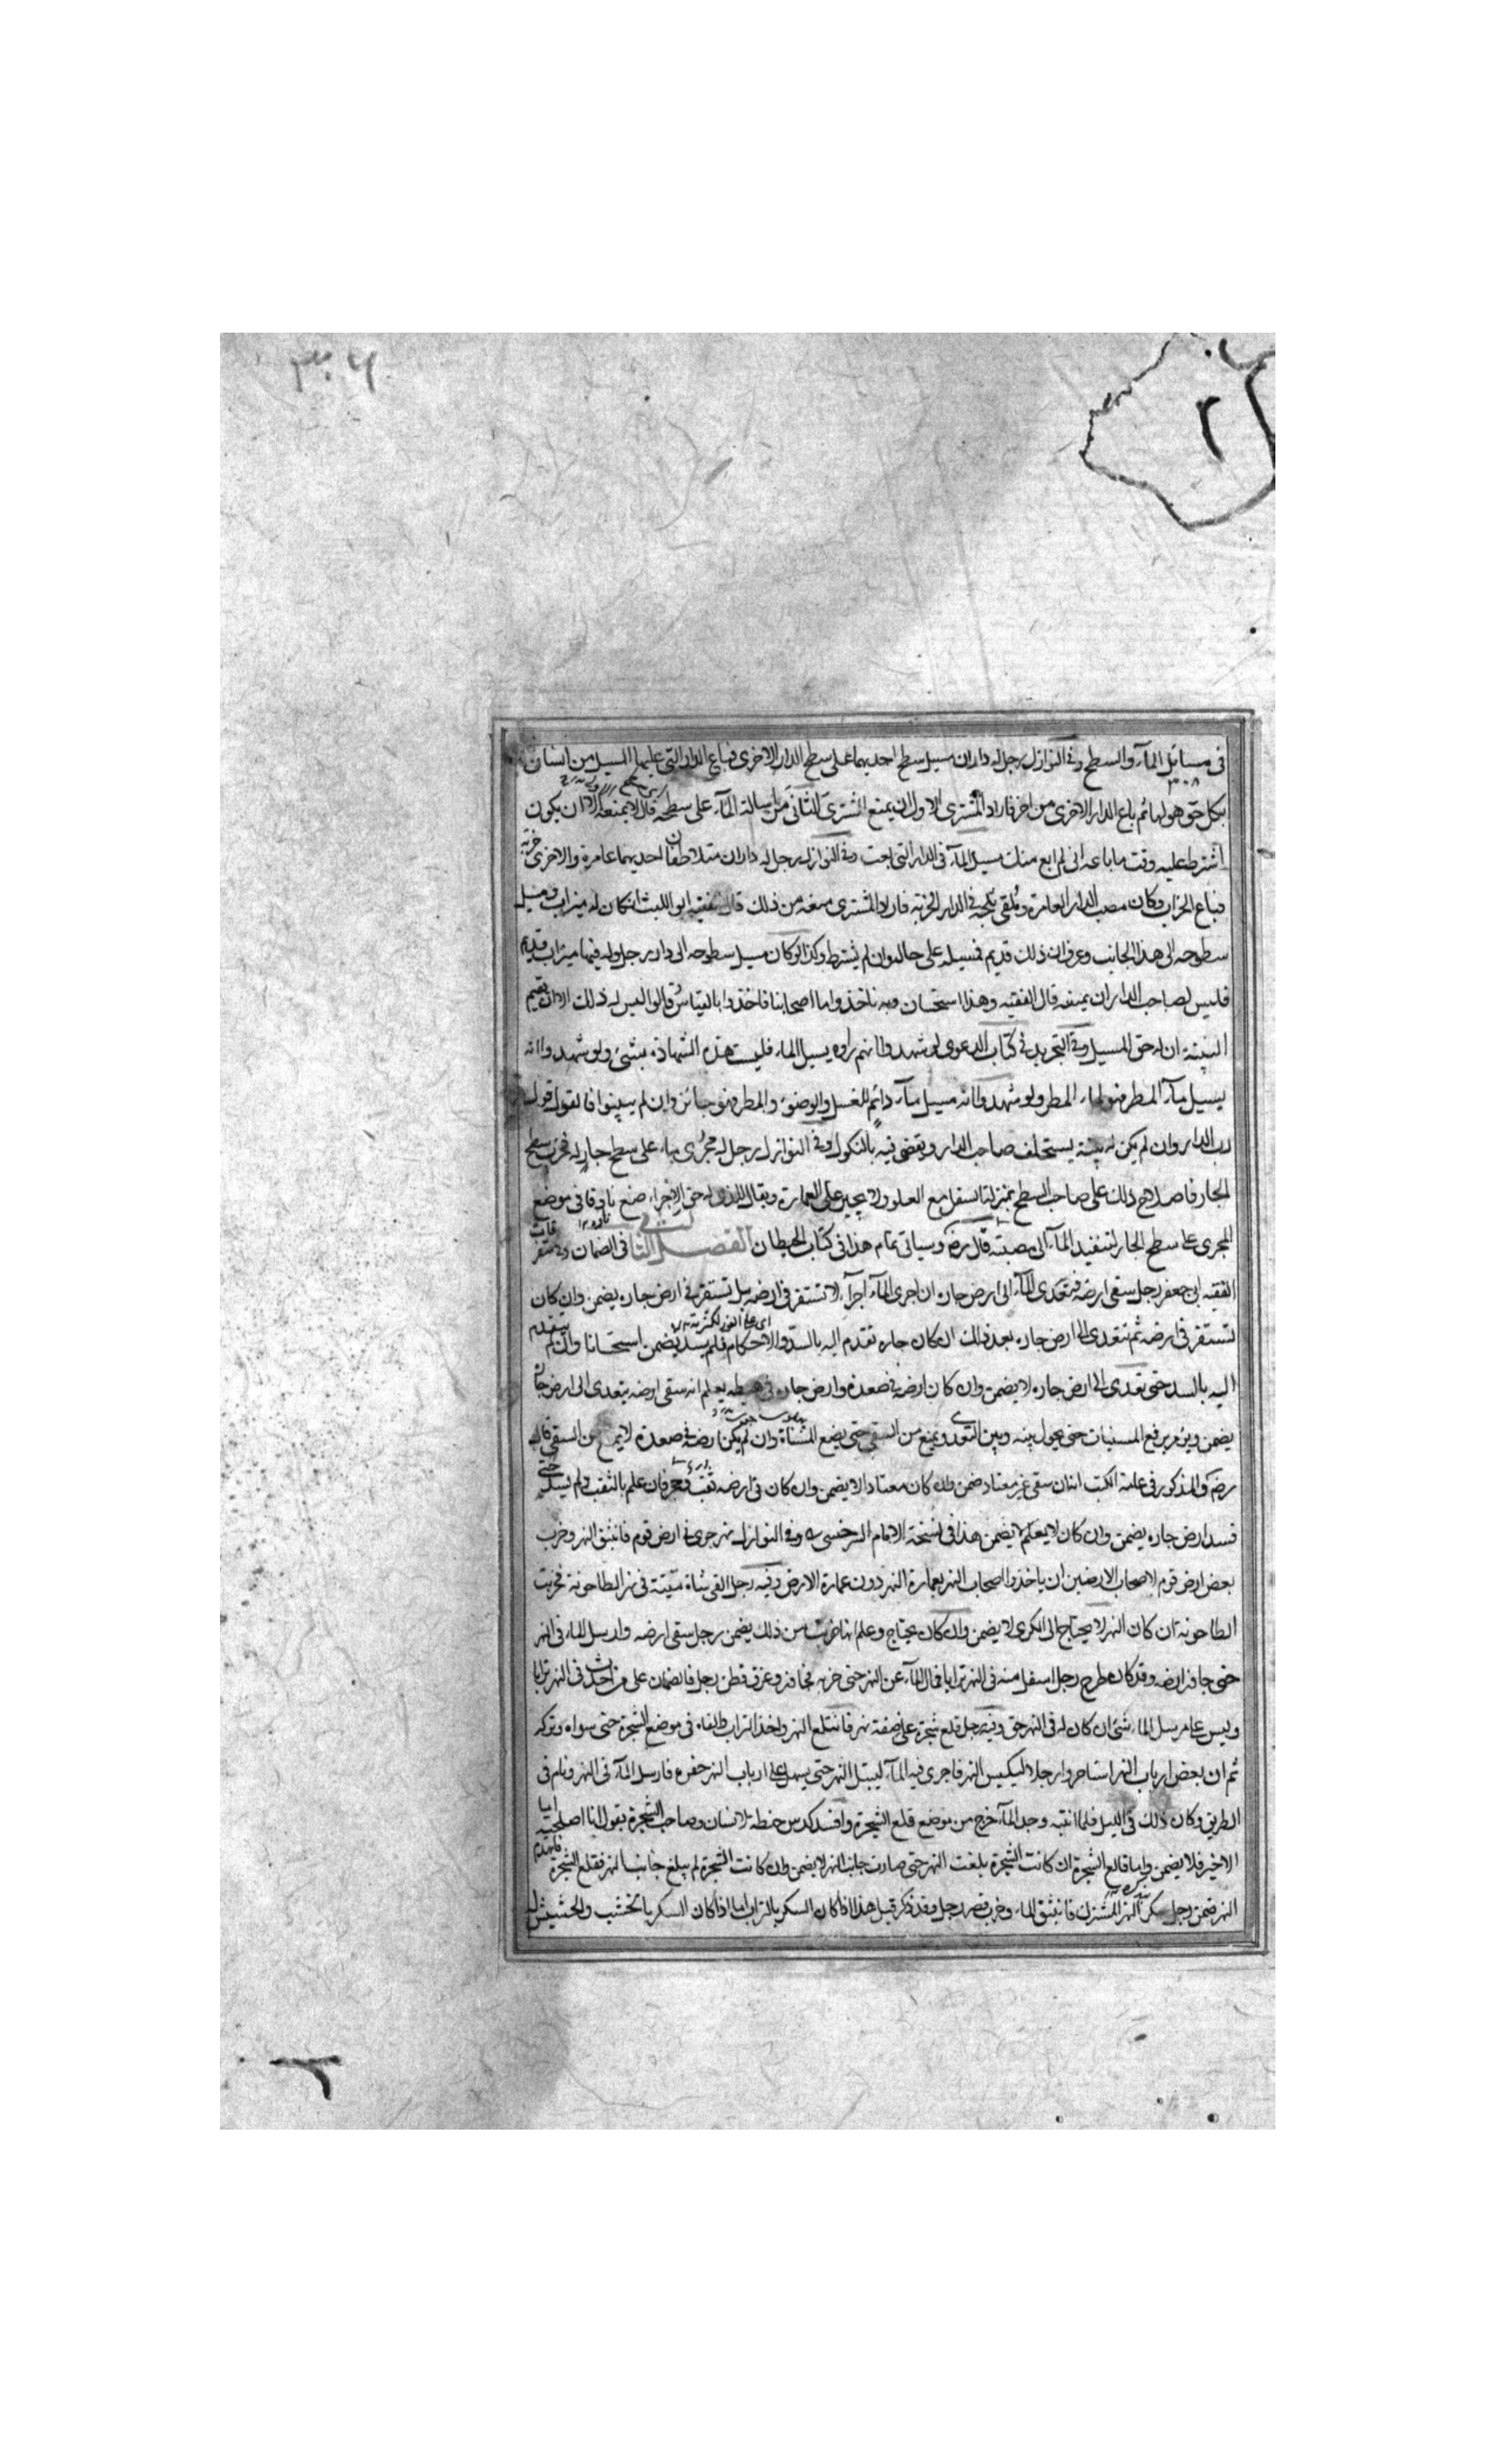 في مسائل المآء والسطح وفي النوازل رجل له داران مسيل سطح احديهما على سطح الدار الاخرى فباع الدار التي عليها المسيل من انسان
٣٠٨
بكل حق هو لها ثم باع الدار الاخرى من اخر فاراد المشترى الاول ان يمنع المشترى الثانى من اسالة المآء على سطحه قال لا يمنعه الا ان يكون
اشترط عليه وقت ما باعه انى لم ابع منك مسيل المآء فى الدار التى بعت وفي النوازل رجل له داران متلاصقان احديهما عامرة والاخرى خربة
فباع الخراب وكان مصب الدار العامرة وملقى ثلجه فى الدار الخربة فاراد المشترى منعه من ذلك قال الفقيه ابو الليث ان كان له ميزاب ومسيل
سطوحه الى هذا الجانب وعرف ان ذلك قديم فمسيله على حاله وان لم يشترط وكذا لو كان مسيل سطوحه الى دار رجل وله فيها ميزاب قديم
فليس لصاحب الدار ان يمنعه قال الفقيه وهذا استحسان وبه ناخذ واما اصحابنا فاخذوا بالقياس وقالوا ليس له ذلك الا ان يقيم
البينة ان له حق المسيل وفي التجريد فى كتاب الدعوى لو شهدوا انهم راوه يسيل الماء فليست هذه الشهادة بشئ ولو شهدوا انه
يسيل مآء المطر فهو لماء المطر ولو شهدوا انه مسيل مآء دائم للغسل والوضوء والمطر فهو جائز وان لم يبينوا فالقول قول
رب الدار وان لم يكن له بينة يستحلف صاحب الدار ويقضى فيه بالنكول وفي النوازل رجل له مجرى ماء على سطح جار له فخرب سطح
الجار فاصلاح ذلك على صاحب السطح بمنزلة السفل مع العلو ولا يجبر على العمارة ويقال للذى له حق الاجراء ضع ناوقا فى موضع
المجرى على سطح الجار لتنفيذ المآء الى مصبه قال رضه وسياتى تمام هذا فى كتاب الحيطان الفصل الثالث فى الضمان
الفقيه ابى جعفر رجل سقى ارضه فتعدى المآء الى ارض جاره ان اجرى المآء اجرآء لا تستقر فى ارضه بل تستقر فى ارض جاره يضمن وان كان
تستقر فى ارضه ثم تتعدى الى ارض جاره بعد ذلك ان كان جاره تقدم اليه بالسد والاحكام فلم يسد يضمن استحسانا وان لم يتقدم
اليه بالسد حتى تعدى الى ارض جاره لا يضمن وان كان ارضه فى صعدة وارض جاره فى هبطه يعلم انه سقى ارضه يتعدى الى ارض جاره
يضمن ويؤمر برفع المسنيات حتى يحول بينه وبين التعدى ويمنع من السقى حتى يضع المسناة وان لم يكن ارضه فى صعدة لا يمنع من السقى قال
رضه والمذكور فى عامة الكتب انه ان سقى غير معتاد ضمن وان كان معتادا لا يضمن وان كان فى ارضه ثقب فان علم بالثقب ولم يسده حتى
فسد ارض جاره يضمن وان كان لا يعلم لا يضمن هذا فى نسخة الامام السرخسى وفى النوازل نهر جرى فى ارض قوم فانبثق النهر وخرب
بعض ارض قوم لاصحاب الارضين ان ياخذوا اصحاب النهر بعمارة النهر دون عمارة الارض وفيه رجل القى شاة ميتة فى نهر الطاحونة فخربت
الطاحونة ان كان النهر لا يحتاج الى الكرى لا يضمن وان كان يحتاج وعلم انها خربت من ذلك يضمن رجل سقى ارضه وارسل الماء فى النهر
حتى جاوز ارضه وقد كان طرح رجل اسفل منه فى النهر ترابا فمال المآء عن النهر حتى وغرق قطن رجل فالضمان على من احدث فى النهر ترابا
وليس على مرسل الماء شئ ان كان له فى النهر حق وفيه رجل قلع شجرة على ضفة نهر فانثلع النهر واخذ التراب والقاه فى موضع الشجرة حتى سواه وتركه
ثم ان بعض ارباب النهر استاجروا رجلا ليكبس النهر فاجرى فيه المآء ليبتل النهر حتى يسهل على ارباب النهر حفره فارسل المآء فى النهر ونام فى
الطريق وكان ذلك فى الليل فلما انتبه وجد المآء خرج من موضع قلع الشجرة وافسد كدس حنطة لانسان وصاحب الشجرة يقول انا اصلحته اما
الاخير فلا يضمن واما قالع الشجرة ان كانت الشجرة بلغت النهر حتى صارت جانب النهر لا يضمن وان كانت الشجرة لم يبلغ جانب النهر فقلع الشجرة فانهدم
النهر ضمن رجل سكر النهر المشترك فانبثق الماء وخرب قصر رجل وقد ذكر قبل هذا اذا كان السكر بالتراب اما اذا كان السكر بالخشب والحشيش